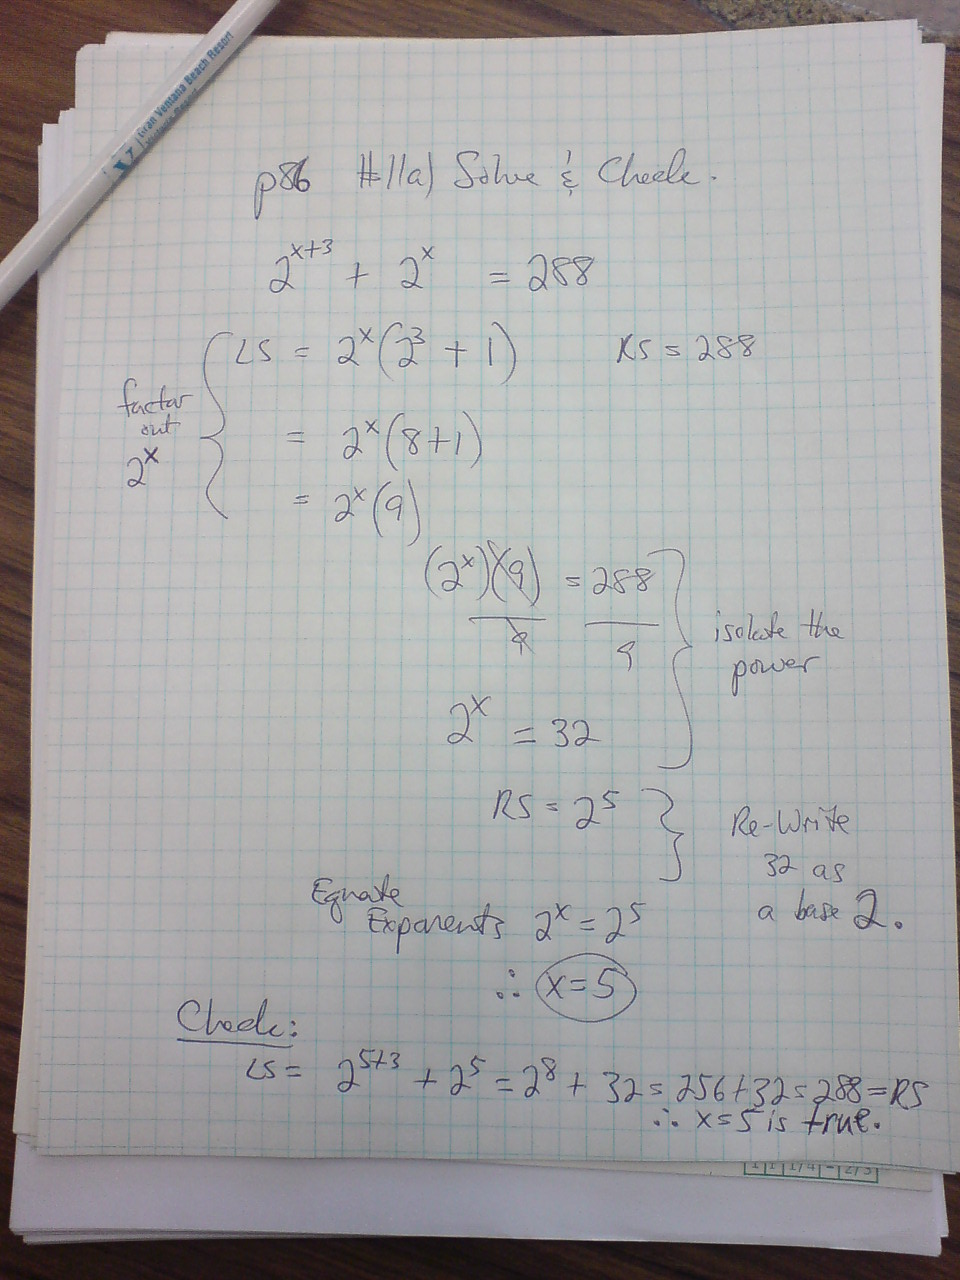 Gran Ventana Beach Resort
p86 #11a) Solve & Check.
2^(x+3) + 2^x = 288
factor out 2^x
LS = 2^x(2^3 + 1) RS = 288
= 2^x(8+1)
= 2^x(9)
(2^x)(9) = 288
9 9
isolate the
power
2^x = 32
RS = 2^5
Re-Write
32 as
a base 2.
Equate
Exponents 2^x = 2^5
∴ x=5
Check:
LS = 2^(5+3) + 2^5 = 2^8 + 32 = 256+32 = 288 = RS
∴ x=5 is true.
1 1 1/4 = 2/3